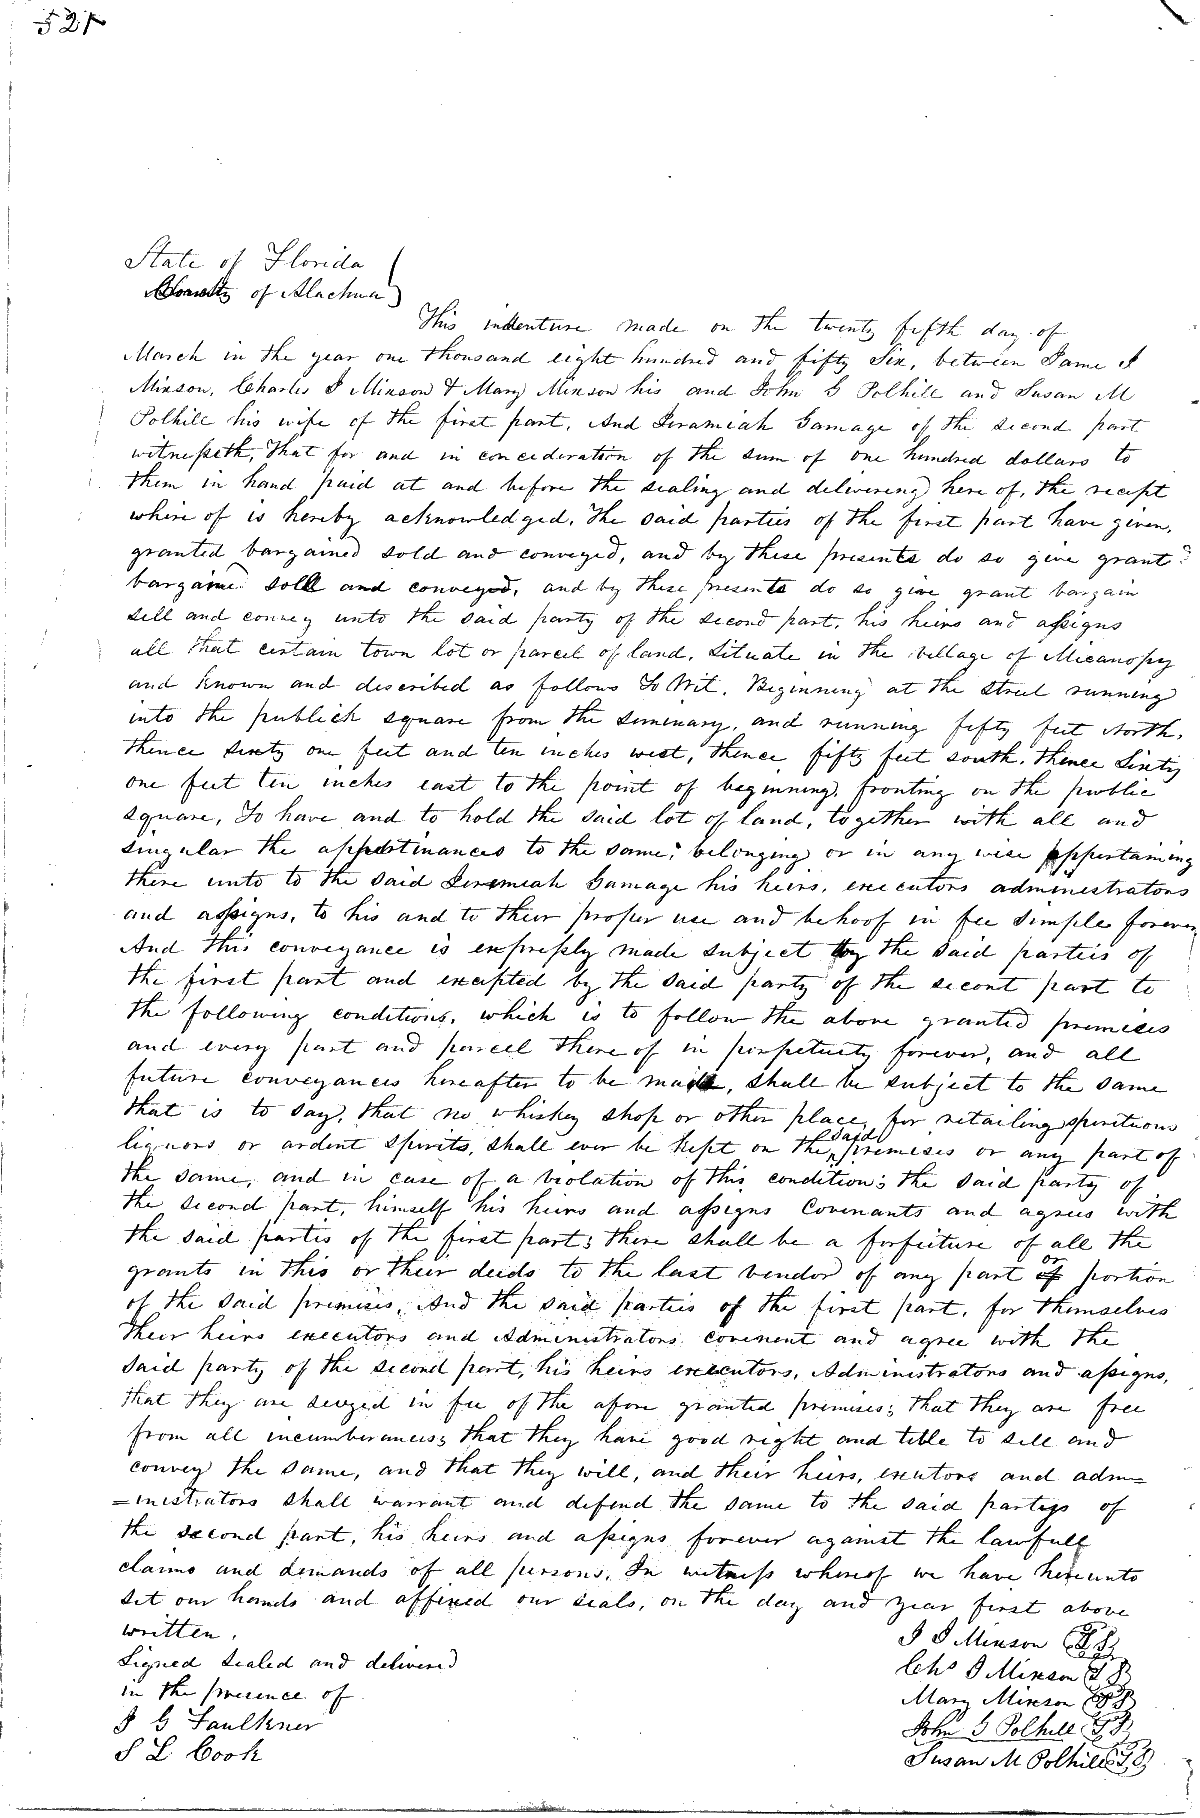 State of Florida
County of Alachua
This indenture made on the twenty fifth day of
March in the year one thousand eight hundred and fifty Six, between Jame J
Minson, Charles J Minson & Mary Minson his and John G Polhill and Susan M
Polhill his wife of the first part, And Jeramiah Gamage of the second part
witnesseth, That for and in concideration of the sum of one hundred dollars to
them in hand paid at and before the sealing and delivering here of, the recept
where of is hereby acknowledged, the said parties of the first part have given,
granted bargained sold and conveyed, and by these presents do so give grant
bargaine sold and conveyed, and by these presents do so give grant bargain
sell and convey unto the said party of the second part, his heirs and assigns
all that certain town lot or parcel of land, Situate in the village of Micanopy
and known and described as follows To Wit, Beginning at the street running
into the publick square from the seminary, and running fifty feet North,
thence sixty one feet and ten inches west, thence fifty feet south, thence Sixty
one feet ten inches east to the point of beginning, fronting on the public
square, To have and to hold the said lot of land, together with all and
singular the appertinances to the same, belonging or in any wise appertaining
there unto to the said Jeremiah Gamage his heirs, executors administrators
and assigns, to his and to their proper use and behoof in fee simple forever
And this conveyance is expressly made subject by the said parties of
the first part and excepted by the said party of the secont part to
the following conditions, which is to follow the above granted premises
and every part and parcel there of in perpetuity forever, and all
future conveyances hereafter to be made, shall be subject to the same
that is to say, that no whiskey shop or other place, for retailing spirituous
liquors or ardent spirits, shall ever be kept on the said premises or any part of
the same, and in case of a violation of this condition; the said party of
the second part, himself his heirs and assigns Covenants and agrees with
the said partis of the first part; there shall be a forfeiture of all the
grants in this or their deeds to the last vendor of any part or portion
of the said premises, And the said parties of the first part, for themselves
their heirs executors and Administrators covenent and agree with the
said party of the second part, his heirs executors, Administrators and assigns,
that they are seized in fee of the afore granted premises; that they are free
from all incumberances; that they have good right and title to sell and
convey the same, and that they will, and their heirs, exutors and adm=
=inistrators shall warrant and defend the same to the said partys of
the second part, his heirs and assigns forever against the lawfull
claims and demands of all persons, In witness whereof we have hereunto
set our hands and affixed our seals, on the day and year first above
written.
Signed sealed and delivered
in the presence of
J G Faulkner
S L Cook
J J Minson LS
Chs J Minson LS
Mary Minson LS
John G Polhill LS
Susan M Polhill LS